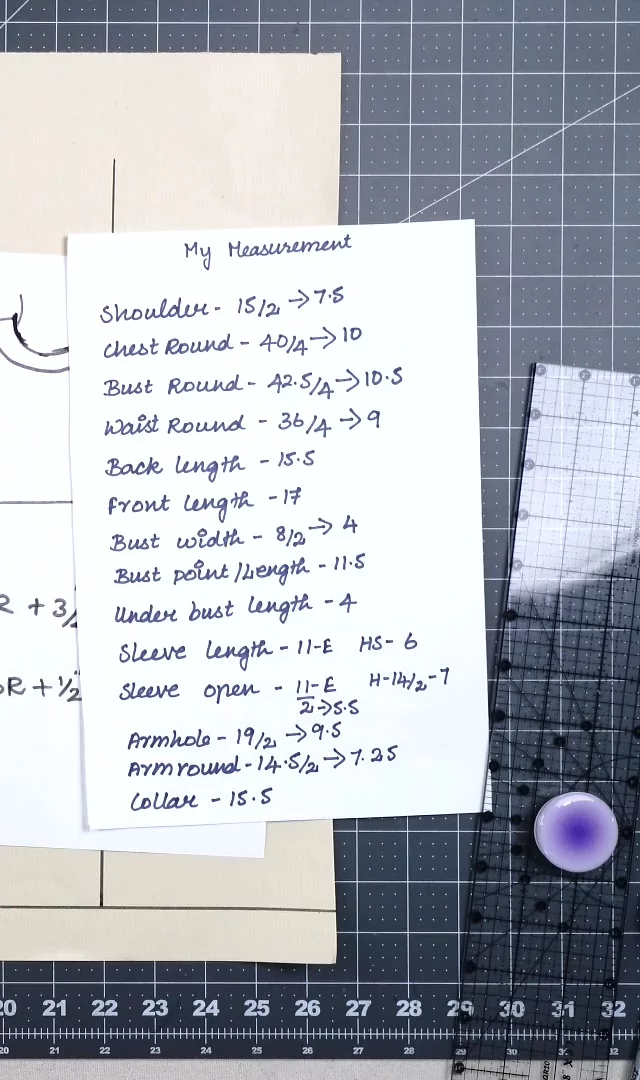 My Measurement
Shoulder - 15/2 → 7.5
Chest Round - 40/4 → 10
Bust Round - 42.5/4 → 10.5
Waist Round - 36/4 → 9
Back length - 15.5
Front length - 17
Bust width - 8/2 → 4
Bust point/Length - 11.5
Under bust length - 4
Sleeve length - 11-E HS- 6
Sleeve open - 11-E H-14/2-7
2 → 5.5
Armhole - 19/2 → 9.5
Armround - 14.5/2 → 7.25
Collar - 15.5
R + 3/
R + 1/2
20 21 22 23 24 25 26 27 28 29 30 31 32
20 21 22 23 24 25 26 27 28 29 30 31 32